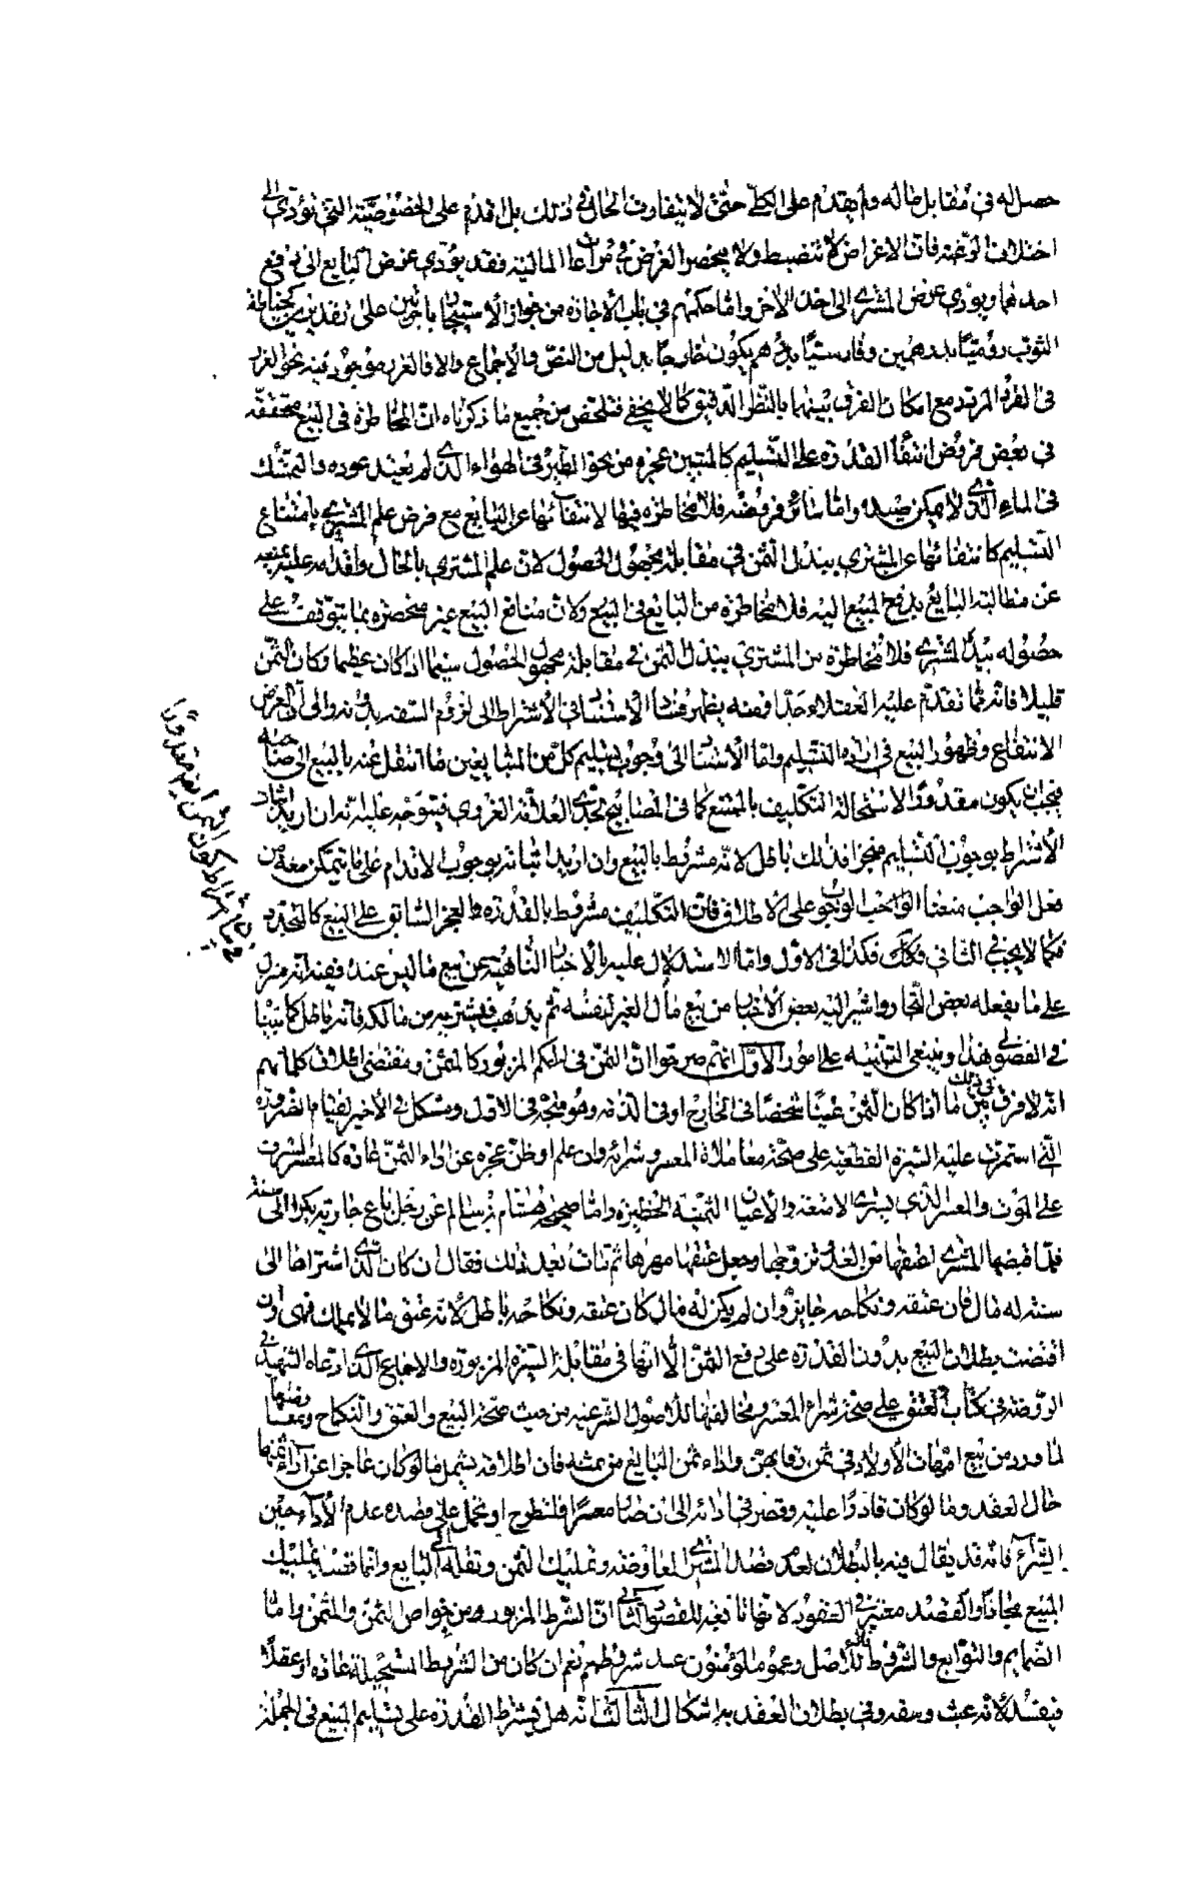 حصل له في مقابل ماله ولم يقدم على الكلّي حتّى لا يتفاوت الحال في ذلك بل اقدم على الخصوصيّة التي تؤدّي الى
اختلاف الرغبة فانّ الاغراض لا تنضبط ولا ينحصر الغرض في مراعاة الماليّة فقد يؤدّي غرض البايع الى توقع
احدهما ويؤدي غرض المشتري الى اخذ الاخر وامّا حكمهم في باب الاجازة من جواز الاستيجار باجرتين على تقديرين كخياطة
الثوب روميّاً بدرهمين وفارسيّاً بدرهم يكون خارجاً بدليل من النصّ والاجماع والا فالغرر موجود فيه نحو الغرر
في الفرد المردّد مع امكان الفرق بينهما بالنّظر الدّقيق كما لا يخفى فتلخّص من جميع ما ذكرناه انّ المخاطرة في البيع متحققة
في بعض فروض انتفاء القدرة على التّسليم كالمتبين عجزه من نحو الطير في الهواء الذي لم يعتد عوده والسّمك
في الماء الذي لا يمكن صيده وامّا سائر فروضه فلا مخاطرة فيها لانتفائها عن البايع مع فرض علم المشتري بامتناع
التّسليم كانتفائها عن المشتري ببذل الثمن في مقابلة مجهول الحصول لانّ علم المشتري بالحال واقدامه عليه يمنعه
عن مطالبة البايع بدفع المبيع اليه فلا مخاطرة من البايع في البيع ولانّ منافع المبيع غير منحصرة بما يتوقّف على
حصوله بيد المشتري فلا مخاطرة من المشتري ببذل الثمن في مقابلة مجهول الحصول سيّما ان كان عظيما وكان الثّمن
قليلا فانّه ممّا تقدم عليه العقلاء جدّا فمنه يظهر فساد الاستناد في الاشتراط الى لزوم السّفه بدونه والى انّ الغرض
الانتفاع وظهور البيع في ارادة التّسليم وامّا الاستناد الى وجوب تسليم كل من المتبايعين ما انتقل عنه بالبيع الى صاحبه
فيجب ان يكون مقدوراً لاستحالة التّكليف بالممتنع كما في المصابيح لجدّي العلاّمة الغروي فيتوجّه عليه انّه ان اريد اثبات
الاشتراط بوجوب التسليم منجزا فذلك باطل لانّه مشروط بالبيع وان اريد اثباته بوجوب الاقدام على ما يتمكن معه من
فعل الواجب منعنا الوجوب على الاطلاق فانّ التّكليف مشروط بالقدرة والعجز السّابق على البيع كالمتجدد
فكما لا يجب في الثاني فكذلك في الاول وامّا الاستدلال عليه بالاخبار النّاهية عن بيع ما ليس عنده ففيه انّه منزل
على ما يفعله بعض التّجار واشير اليه بعض الاخبار من بيع مال الغير لنفسه ثم يذهب فيشتريه من مالكه فانّه باطل كما بيّنا
في الفضولي هذا وينبغي التنبيه على امور الاوّل انّهم صرحوا انّ الثّمن في الحكم المزبور كالمثمن ومقتضى اطلاق كلماتهم
انّه لا فرق في ذلك بين ما اذا كان الثّمن عيناً شخصاً في الخارج او في الذّمة وهو متّجه في الاول ومشكل في الاخير لقيام الضرورة
التي استمرت عليه السّيرة القطعيّة على صحّة معاملات المعسر وشرائه وان علم او ظنّ عجزه عن اداء الثمّن عادة كالمعسر المشرف
على الموت والمعسر الذي يشتري الامتعة والاعيان الثمينة الخطيرة وامّا صحيح هشام بن سالم عن رجل باع جارية بكرا الى سنة
فلمّا قبضها المشتري اعتقها من الغد وتزوّجها وجعل عتقها مهرها ثم مات بعد ذلك فقال ان كان الذي اشتراها الى
سنة له مال فان عتقه ونكاحه جايز وان لم يكن له مال كان عتقه ونكاحه باطل لانّه عتق ما لا يملك فهي وان
اقتضت بطلان البيع بدون القدرة على دفع الثمّن الّا انّها في مقابلة السيّرة المزبورة والاجماع الذي ادّعاه الشّهيد في
الروّضة في كتاب العتق على صحّة شراء المعسر ومخالفتها للاصول الشّرعيّة من حيث صحّة البيع والعتق والنّكاح ومعارضتها
لما ورد من بيع امّهات الاولاد في ثمن رقابهنّ واداء ثمن البايع من ثمنه فان اطلاقه يشمل ما لو كان عاجزا عن اداء ثمنها
حال العقد وما لو كان قادرًا عليه وقصّر في ادائه الى ان صار معسرًا فلتطرح او تحمل على قصده عدم الاداء حين
الشّراء فانه قد يقال فيه بالبطلان لعدم قصد المشتري المعاوضة وتمليك الثمن ونقله الى البايع وانّما قصد تمليك
المبيع مجاناً والقصد معتبر في العقود لانّها تابعة للقصود الثاني انّ الشّرط المزبور من خواص الثمن والمثمن وامّا
الضمايم والتوابع والشّروط فلا للاصل وعموم المؤمنون عند شروطهم نعم ان كان من الشّروط المستحيلة عادة او عقلاً
فيفسد لانّه عبث وسفه وفي بطلان العقد به اشكال الثّالث انّه هل يشترط القدرة على تسليم المبيع في الجملة